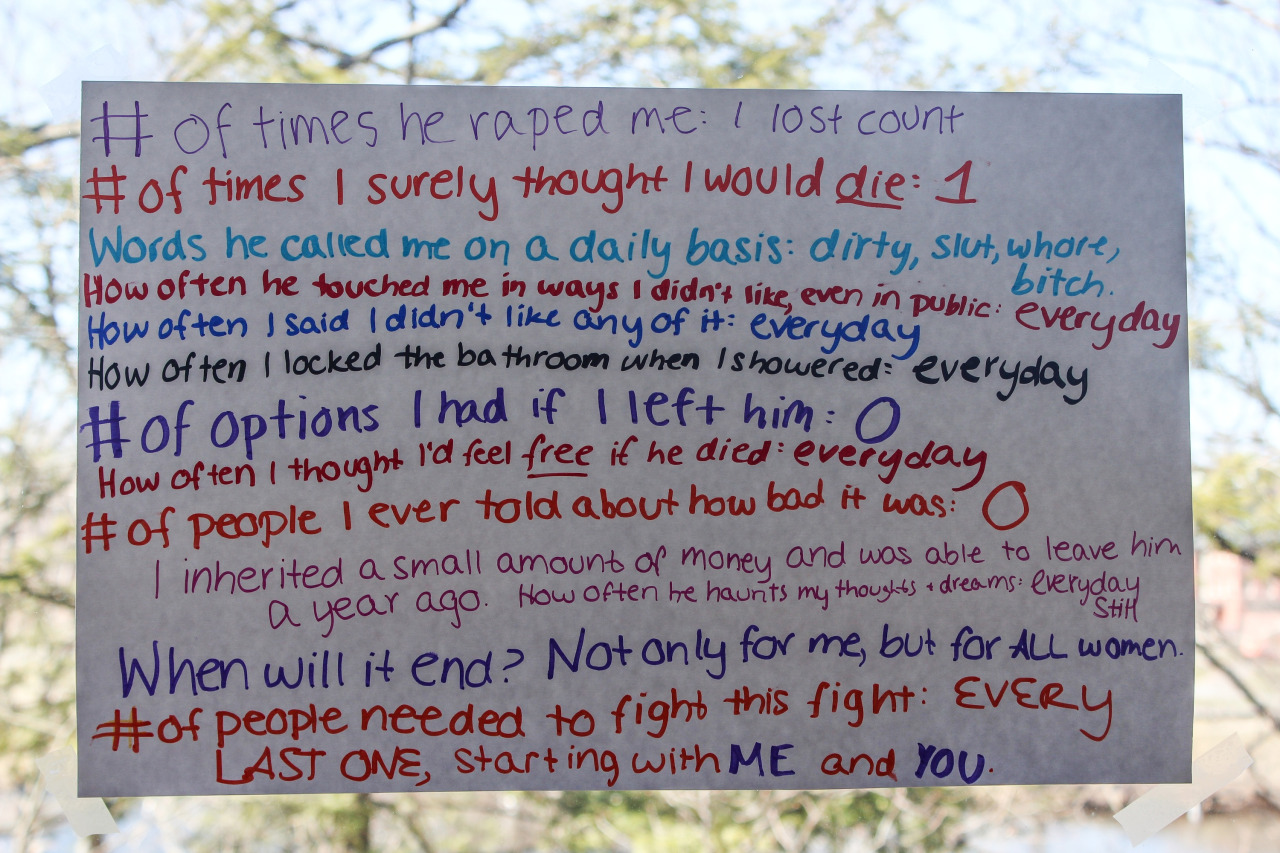 # of times he raped me: I lost count
# of times I surely thought I would die: 1
Words he called me on a daily basis: dirty, slut, whore,
bitch.
How often he touched me in ways I didn't like, even in public: everyday
How often I said I didn't like any of it: everyday
How often I locked the bathroom when I showered: everyday
# of options I had if I left him: 0
How often I thought I'd feel free if he died: everyday
# of people I ever told about how bad it was: 0
I inherited a small amount of money and was able to leave him
a year ago. How often he haunts my thoughts + dreams: everyday
Still
When will it end? Not only for me, but for ALL women.
# of people needed to fight this fight: EVERY
LAST ONE, starting with ME and YOU.